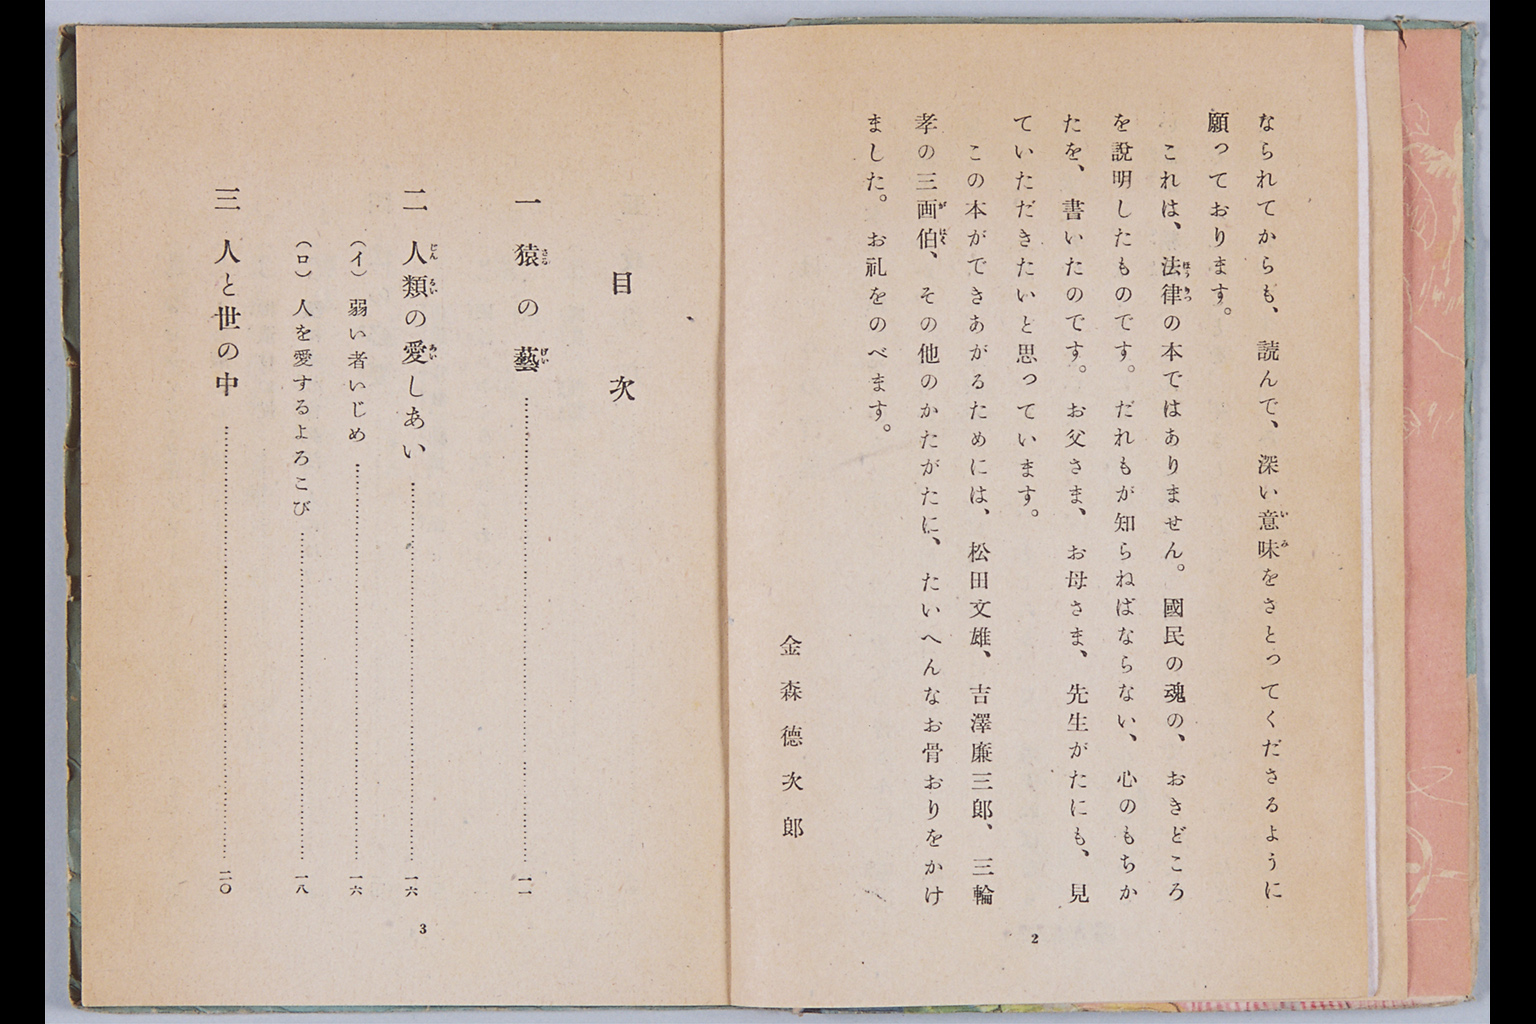 なられてからも、読んで、深い意味をさとってくださるように
願っております。
これは、法律の本ではありません。國民の魂の、おきどころ
を説明したものです。だれもが知らねばならない、心のもちか
たを、書いたのです。お父さま、お母さま、先生がたにも、見
ていただきたいと思っています。
この本ができあがるためには、松田文雄、吉澤廉三郎、三輪
孝の三画伯、その他のかたがたに、たいへんなお骨おりをかけ
ました。お礼をのべます。
金森德次郎
2
目次
一 猿の藝……一一
二 人類の愛しあい……一六
（イ）弱い者いじめ……一六
（ロ）人を愛するよろこび……一八
三 人と世の中……二〇
3